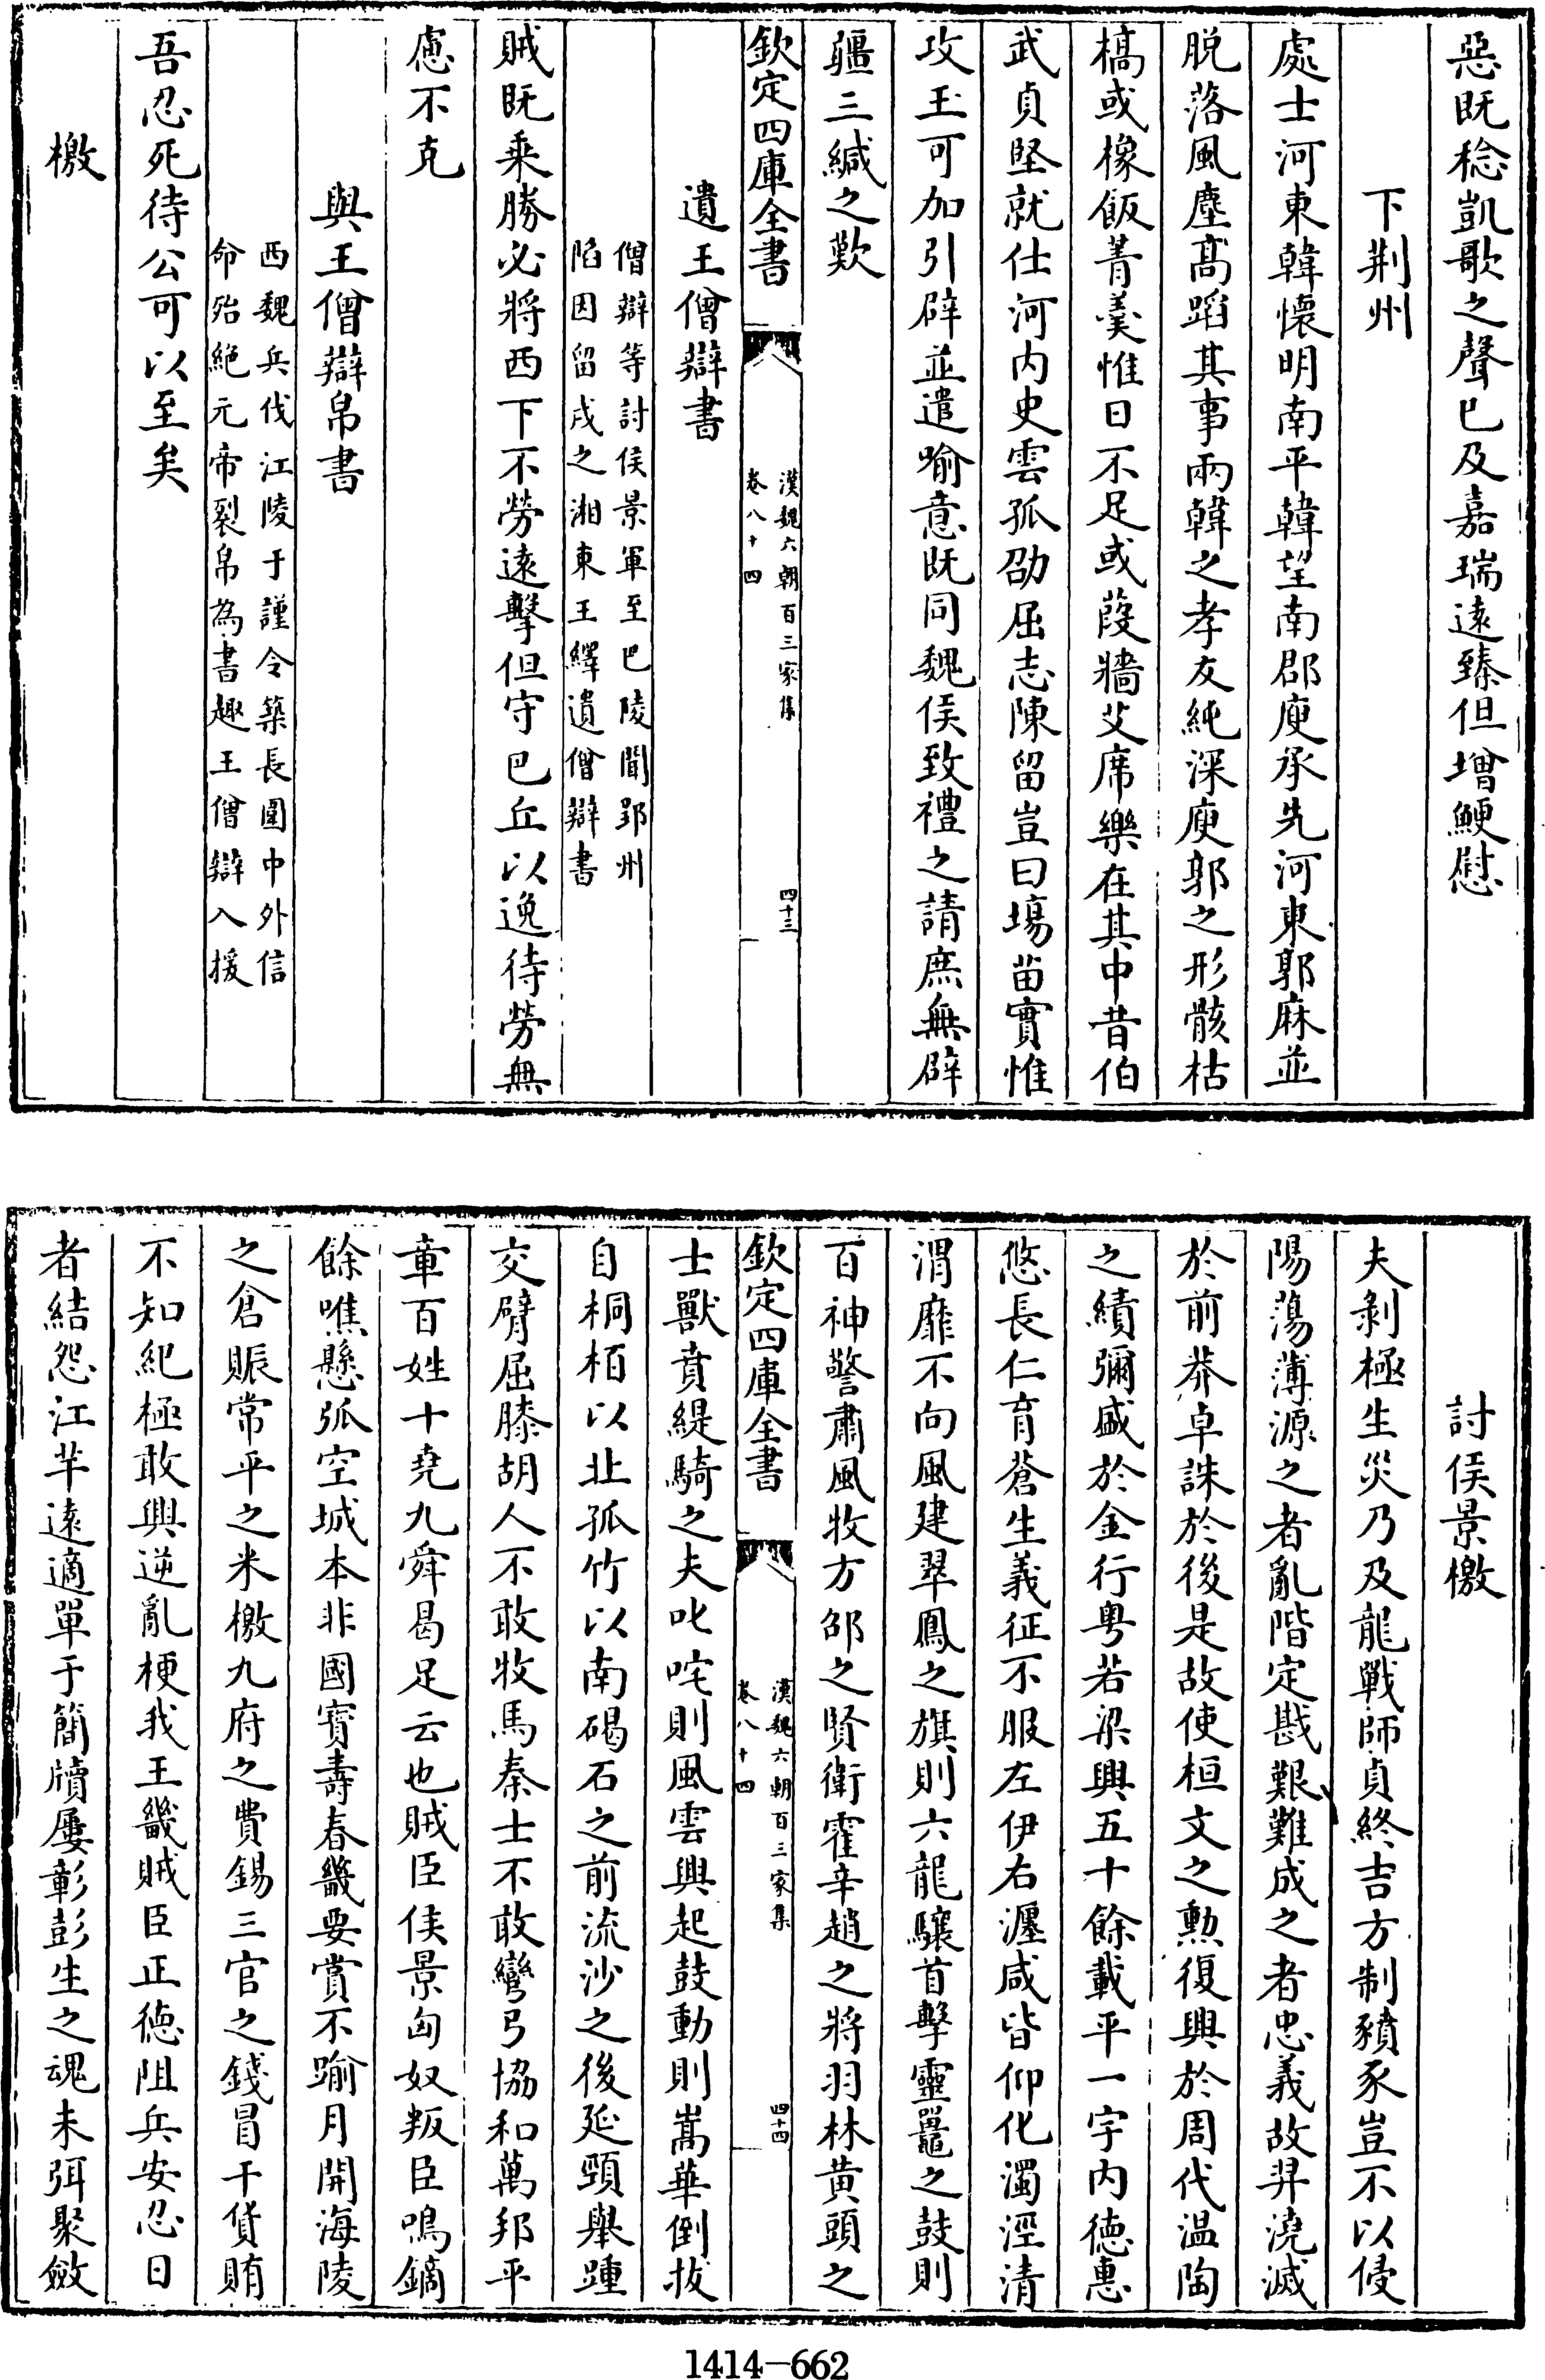 惡既稔凱歌之聲已及嘉瑞遠臻但增鯁慰
下荆州
處士河東韓懷明南平韓望南郡庾承先河東郭麻並
脱落風塵髙蹈其事兩韓之孝友純深庾郭之形骸枯
槁或橡飯菁羮惟日不足或葭牆艾席樂在其中昔伯
武貞堅就仕河内史雲孤劭屈志陳留豈曰塲苗實惟
攻玉可加引辟並遣喻意既同魏侯致禮之請庶無辟
疆三緘之歎
欽定四庫全書
漢魏六朝百三家集
卷八十四
四十三
遺王僧辯書
僧辯等討侯景軍至巴陵聞郢州
陷因留戍之湘東王繹遺僧辯書
賊既乗勝必將西下不勞遠擊但守巴丘以逸待勞無
慮不克
與王僧辯帛書
西魏兵伐江陵于謹令築長圍中外信
命殆絶元帝裂帛為書趣王僧辯入援
吾忍死待公可以至矣
檄
討侯景檄
夫剥極生災乃及龍戰師貞終吉方制豶豕豈不以侵
陽蕩薄源之者亂階定戡艱難成之者忠義故羿澆滅
於前莽卓誅於後是故使桓文之勲復興於周代温陶
之績彌盛於金行粤若梁興五十餘載平一宇内徳惠
悠長仁育蒼生義征不服左伊右瀍咸皆仰化濁涇清
渭靡不向風建翠鳳之旗則六龍驤首擊靈鼉之鼓則
百神警肅風牧方邵之賢衛霍辛趙之將羽林黄頭之
欽定四庫全書
漢魏六朝百三家集
卷八十四
四十四
士獸賁緹騎之夫叱咤則風雲興起鼓動則嵩華倒拔
自桐栢以北孤竹以南碣石之前流沙之後延頸舉踵
交臂屈膝胡人不敢牧馬秦士不敢彎弓協和萬邦平
章百姓十堯九舜曷足云也賊臣侯景匈奴叛臣鳴鏑
餘噍懸弧空城本非國寳壽春畿要賞不踰月開海陵
之倉賑常平之米檄九府之費錫三官之錢冒干貨賄
不知紀極敢興逆亂梗我王畿賊臣正徳阻兵安忍日
者結怨江芊遠適單于簡牘屢彰彭生之魂未弭聚斂
1414—662